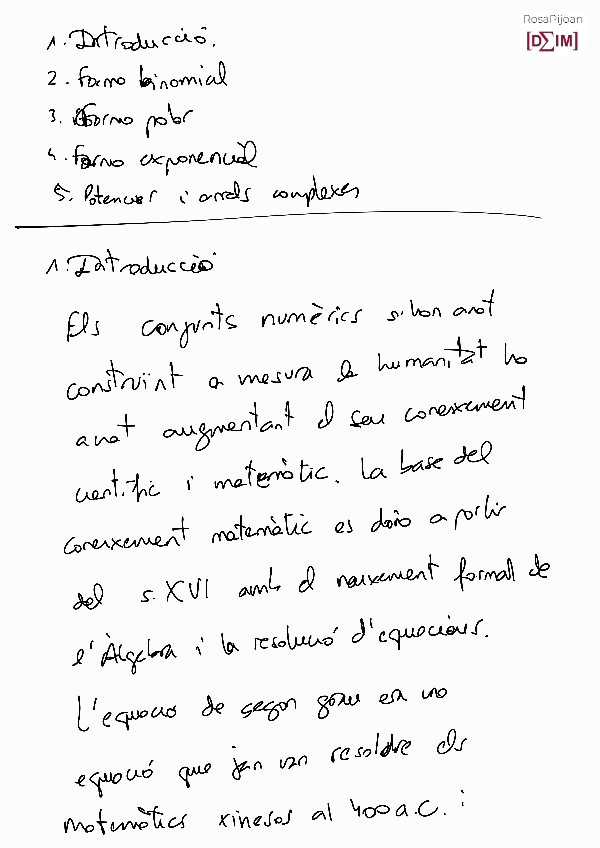 RosaPijoan
[D∑IM]
1. Introducció.
2. Forma binomial
3. Forma polar
4. Forma exponencial
5. Potencies i arrels complexes
1. Introducció
Els conjunts numèrics s'han anat
construïnt a mesura la humanitat ha
anat augmentant el seu coneixement
científic i matemàtic. La base del
coneixement matemàtic es dóna a partir
del s. XVI amb el naixement formal de
l'Àlgebra i la resolució d'equacions.
L'equació de segon grau era una
equació que jan van resoldre els
matemàtics xinesos al 400 a.C. i